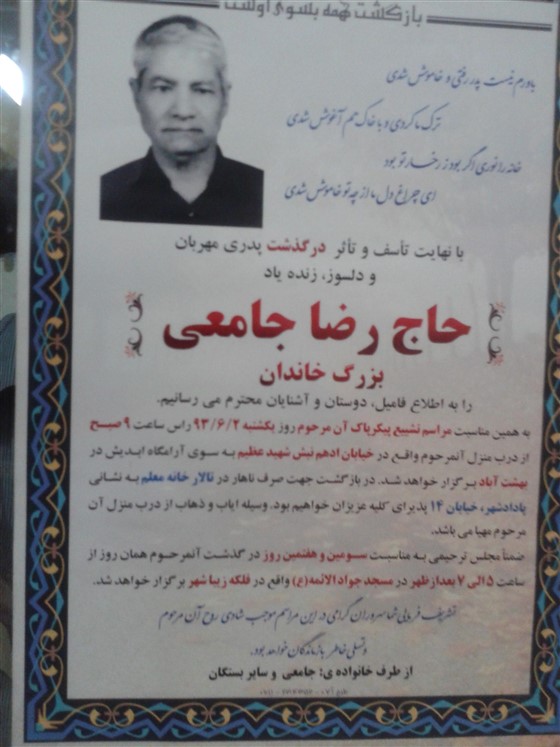 بازگشت همه بسوی اوست
باورم نیست پدر رفتی و خاموش شدی
ترک ما کردی و با خاک هم آغوش شدی
خانه را نوری اگر بود ز رخسار تو بود
ای چراغ دل ما از چه تو خاموش شدی
با نهایت تأسف و تأثر درگذشت پدری مهربان
و دلسوز، زنده یاد
حاج رضا جامعی
بزرگ خاندان
را به اطلاع فامیل، دوستان و آشنایان محترم می رسانیم.
به همین مناسبت مراسم تشییع پیکرپاک آن مرحوم روز یکشنبه ۹۳/۶/۲ راس ساعت ۹ صبح
از درب منزل آنمرحوم واقع در خیابان ادهم نبش شهید عظیم به سوی آرامگاه ابدیش در
بهشت آباد برگزار خواهد شد. در بازگشت جهت صرف ناهار در تالار خانه معلم به نشانی
پادادشهر، خیابان ۱۴ پذیرای کلیه عزیزان خواهیم بود. وسیله ایاب و ذهاب از درب منزل آن
مرحوم مهیا می باشد.
ضمناً مجلس ترحیمی به مناسبت سومین و هفتمین روز در گذشت آنمرحوم همان روز از
ساعت ۵ الی ۷ بعداز ظهر در مسجد جواد الائمه(ع) واقع در فلکه زیبا شهر برگزار خواهد شد.
تشریف فرمایی شما سروران گرامی در این مراسم موجب شادی روح آن مرحوم
و تسلی خاطر بازماندگان خواهد بود.
از طرف خانواده ی: جامعی و سایر بستگان